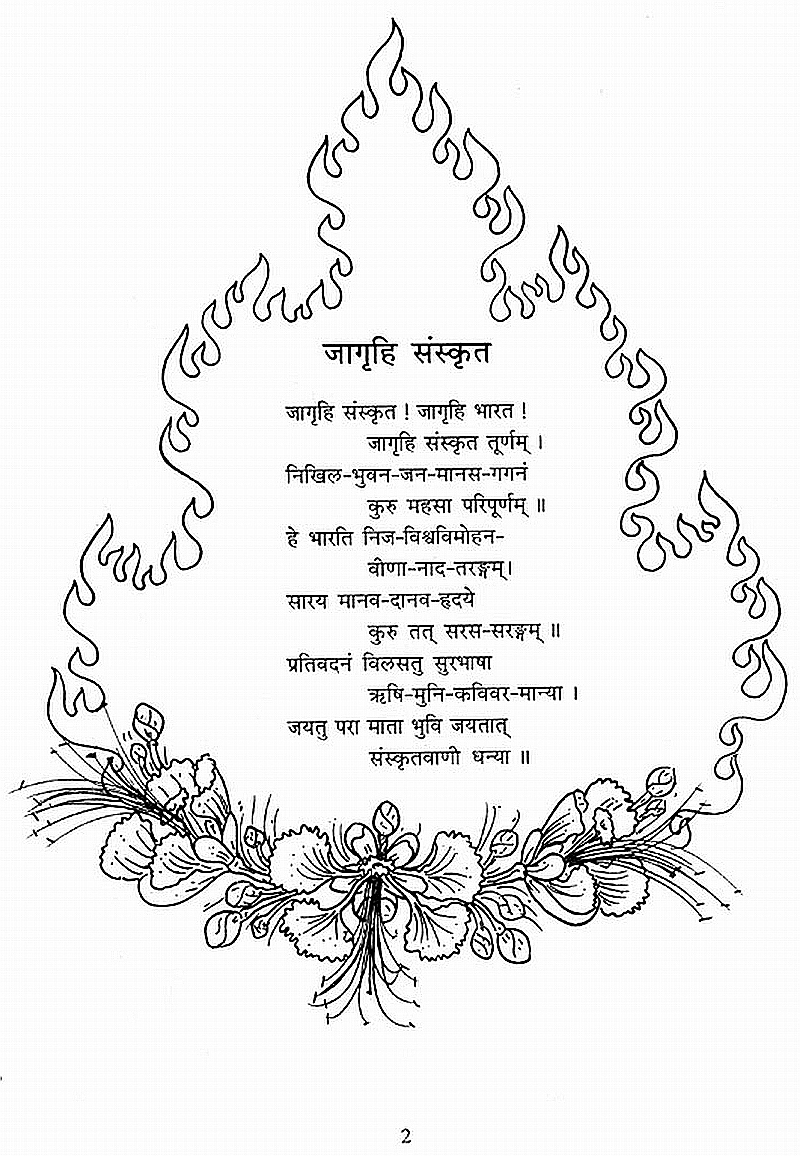 जागृहि संस्कृत
जागृहि संस्कृत ! जागृहि भारत !
जागृहि संस्कृत तूर्णम् ।
निखिल-भुवन-जन-मानस-गगनं
कुरु महसा परिपूर्णम् ॥
हे भारति निज-विश्वविमोहन-
वीणा-नाद-तरङ्गम्।
सारय मानव-दानव-हृदये
कुरु तत् सरस-सरङ्गम् ॥
प्रतिवदनं विलसतु सुरभाषा
ऋषि-मुनि-कविवर-मान्या ।
जयतु परा माता भुवि जयतात्
संस्कृतवाणी धन्या ॥
2